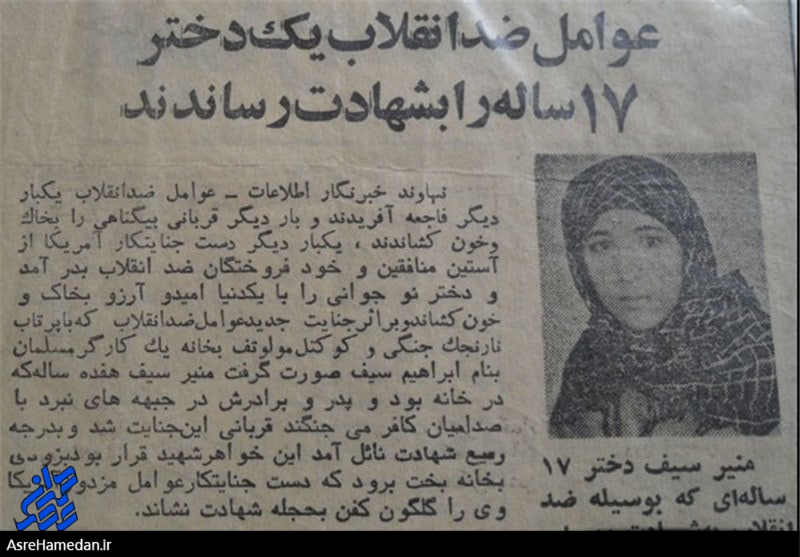 عوامل ضدانقلاب یک دختر
۱۷ ساله را بشهادت رساندند
نهاوند خبرنگار اطلاعات ــ عوامل ضدانقلاب یکبار
دیگر فاجعه آفریدند و بار دیگر قربانی بیگناهی را بخاك
وخون کشاندند ، یکبار دیگر دست جنایتکار آمریکا از
آستین منافقین و خود فروختگان ضد انقلاب بدر آمد
و دختر نو جوانی را با یکدنیا امیدو آرزو بخاک و
خون کشاندوبراثرجنایت جدیدعوامل‌ضدانقلاب که‌باپرتاب
نارنجك جنگی و کوکتل‌مولوتف بخانه یك کارگرمسلمان
بنام ابراهیم سیف صورت گرفت منیر سیف هفده ساله‌که
در خانه بود و پدر و برادرش در جبهه های نبرد با
صدامیان کافر می جنگند قربانی این‌جنایت شد و بدرجه
رفیع شهادت نائل آمد این خواهرشهید قرار بود بزودی
بخانه بخت برود که دست جنایتکارعوامل مزدور
وی را گلگون کفن بحجله شهادت نشاند.
منیر سیف دختر ۱۷
ساله‌ای که بوسیله ضد
AsreHamedan.ir